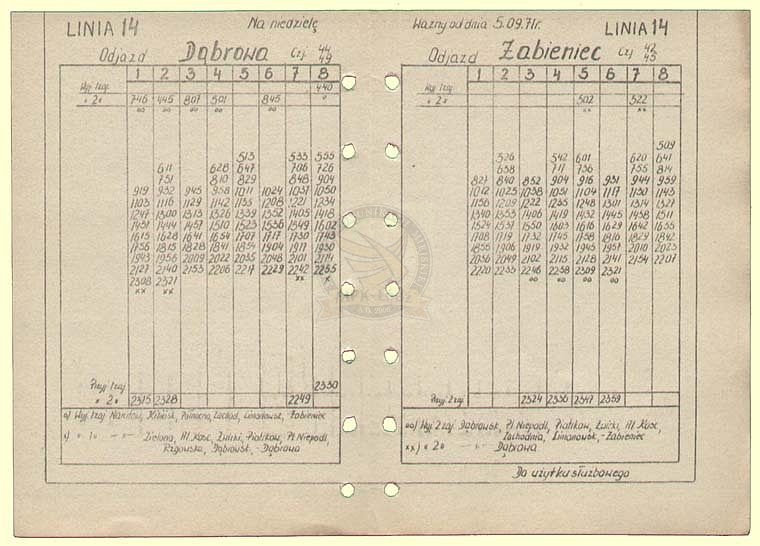 LINIA 14
Na niedzielę
Odjazd Dąbrowa Czj 44/49
1 2 3 4 5 6 7 8
Wyj. 1 zaj. 440
" 2 " 746 445 807 501 845
oo oo oo oo oo o
513 533 555
611 628 647 706 726
751 810 829 848 904
919 932 945 958 1011 1024 1037 1050
1103 1116 1129 1142 1155 1208 1221 1234
1247 1300 1313 1326 1339 1352 1405 1418
1431 1444 1457 1510 1523 1536 1549 1602
1615 1628 1641 1654 1707 1717 1730 1743
1756 1815 1828 1841 1854 1904 1917 1930
1943 1956 2009 2022 2035 2048 2101 2114
2127 2140 2153 2206 2217 2229 2242 2255
2308 2321 xx x
xx xx
Przyj. 1 zaj 2330
" 2 " 2315 2328 2249
o) Wyj. 1 zaj. Narutow, Kilińsk, Północna, Zachod, Limanowsk, Żabieniec
x) " 1 " Zielona, Al. Kośc, Żwirki, Piotrkow, Pl. Niepodl,
Rzgowska, Dąbrowsk, - Dąbrowa
Ważny od dnia 5.09.71r.
LINIA 14
Odjazd Żabieniec Czj 42/45
1 2 3 4 5 6 7 8
Wyj. 1 zaj.
" 2 " 502 522
xx xx
509
526 542 601 620 641
658 717 736 755 814
827 840 852 904 916 931 944 959
1012 1025 1038 1051 1104 1117 1130 1143
1156 1209 1222 1235 1248 1301 1314 1327
1340 1353 1406 1419 1432 1445 1458 1511
1524 1537 1550 1603 1616 1629 1642 1655
1708 1719 1732 1745 1758 1816 1829 1842
1855 1906 1919 1932 1945 1957 2010 2023
2036 2049 2102 2115 2128 2141 2154 2207
2220 2233 2246 2258 2309 2321
oo oo oo oo
Przyj. 2 zaj. 2324 2336 2347 2359
oo) Wyj. 2 zaj. Dąbrowsk, Pl. Niepodl, Piotrkow, Żwirki, Al. Kośc,
Zachodnia, Limanowsk, - Żabieniec
xx) " 2 " Dąbrowa
Do użytku służbowego